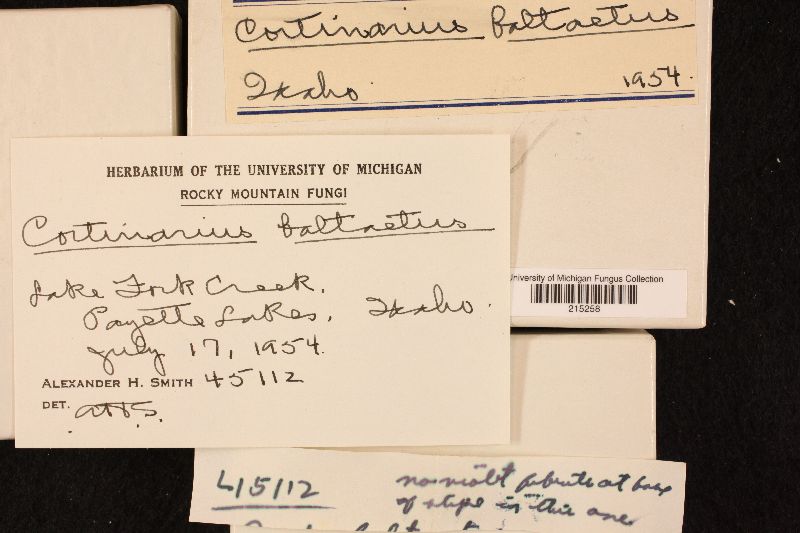 Cortinarius baltaetus
Idaho 1954.
HERBARIUM OF THE UNIVERSITY OF MICHIGAN
ROCKY MOUNTAIN FUNGI
Cortinarius baltaetus
Lake Fork Creek,
Payette Lakes, Idaho.
July 17, 1954.
ALEXANDER H. SMITH 45112
DET. AHS.
University of Michigan Fungus Collection
215258
45112
no violet at base
of stipe in this one